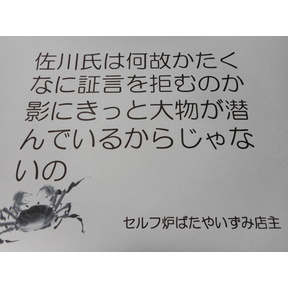 佐川氏は何故かたく
なに証言を拒むのか
影にきっと大物が潜
んでいるからじゃな
いの
セルフ炉ばたやいずみ店主